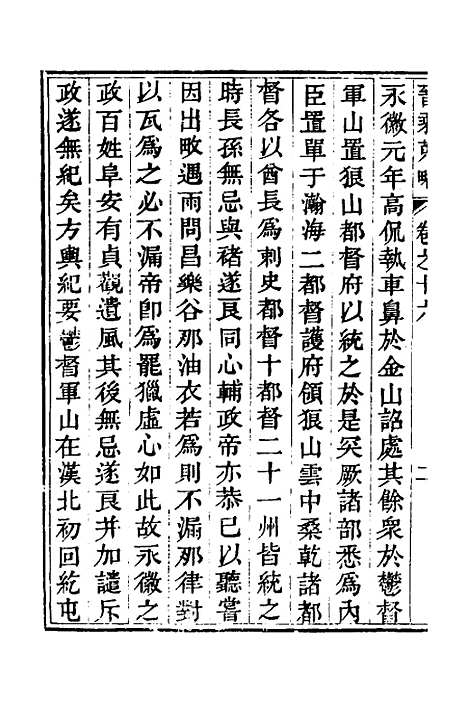 晉乘蒐略 卷之十六 二
永徽元年高侃執車鼻於金山詔處其餘衆於鬱督
軍山置狼山都督府以統之於是突厥諸部悉爲內
臣置單于瀚海二都督護府領狼山雲中桑乾諸都
督各以酋長爲刺史都督十都督二十一州皆統之
時長孫無忌與褚遂良同心輔政帝亦恭己以聽嘗
因出畋遇雨問昌樂谷那油衣若爲則不漏那律對
以瓦爲之必不漏帝卽爲罷獵虛心如此故永徽之
政百姓阜安有貞觀遺風其後無忌遂良并加譴斥
政遂無紀矣方輿紀要鬱督軍山在漠北初回紇屯